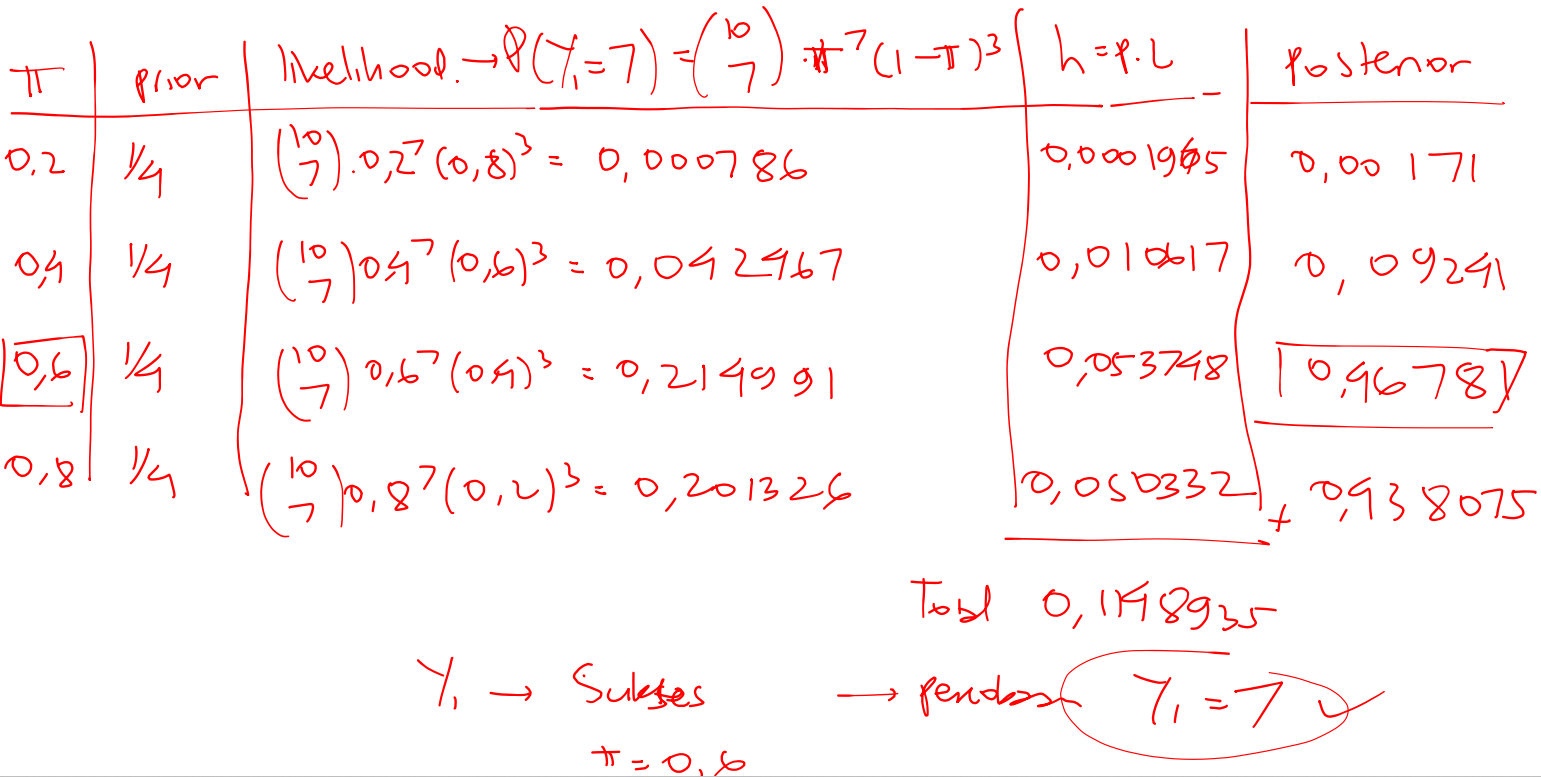 π prior likelihood. → P(Y₁=7) = (10 7) · π⁷ (1-π)³ h = P.L Posterior
0,2 1/4 (10 7) . 0,2⁷ (0,8)³ = 0,000786 0,0001965 0,00171
0,4 1/4 (10 7) 0,4⁷ (0,6)³ = 0,042467 0,010617 0,09241
0,6 1/4 (10 7) 0,6⁷ (0,4)³ = 0,214991 0,053748 0,46781
0,8 1/4 (10 7) 0,8⁷ (0,2)³ = 0,201326 0,050332 + 0,438075
Total 0,1148935
Y₁ → Sukses → Y₁ = 7 ✓
π = 0,6